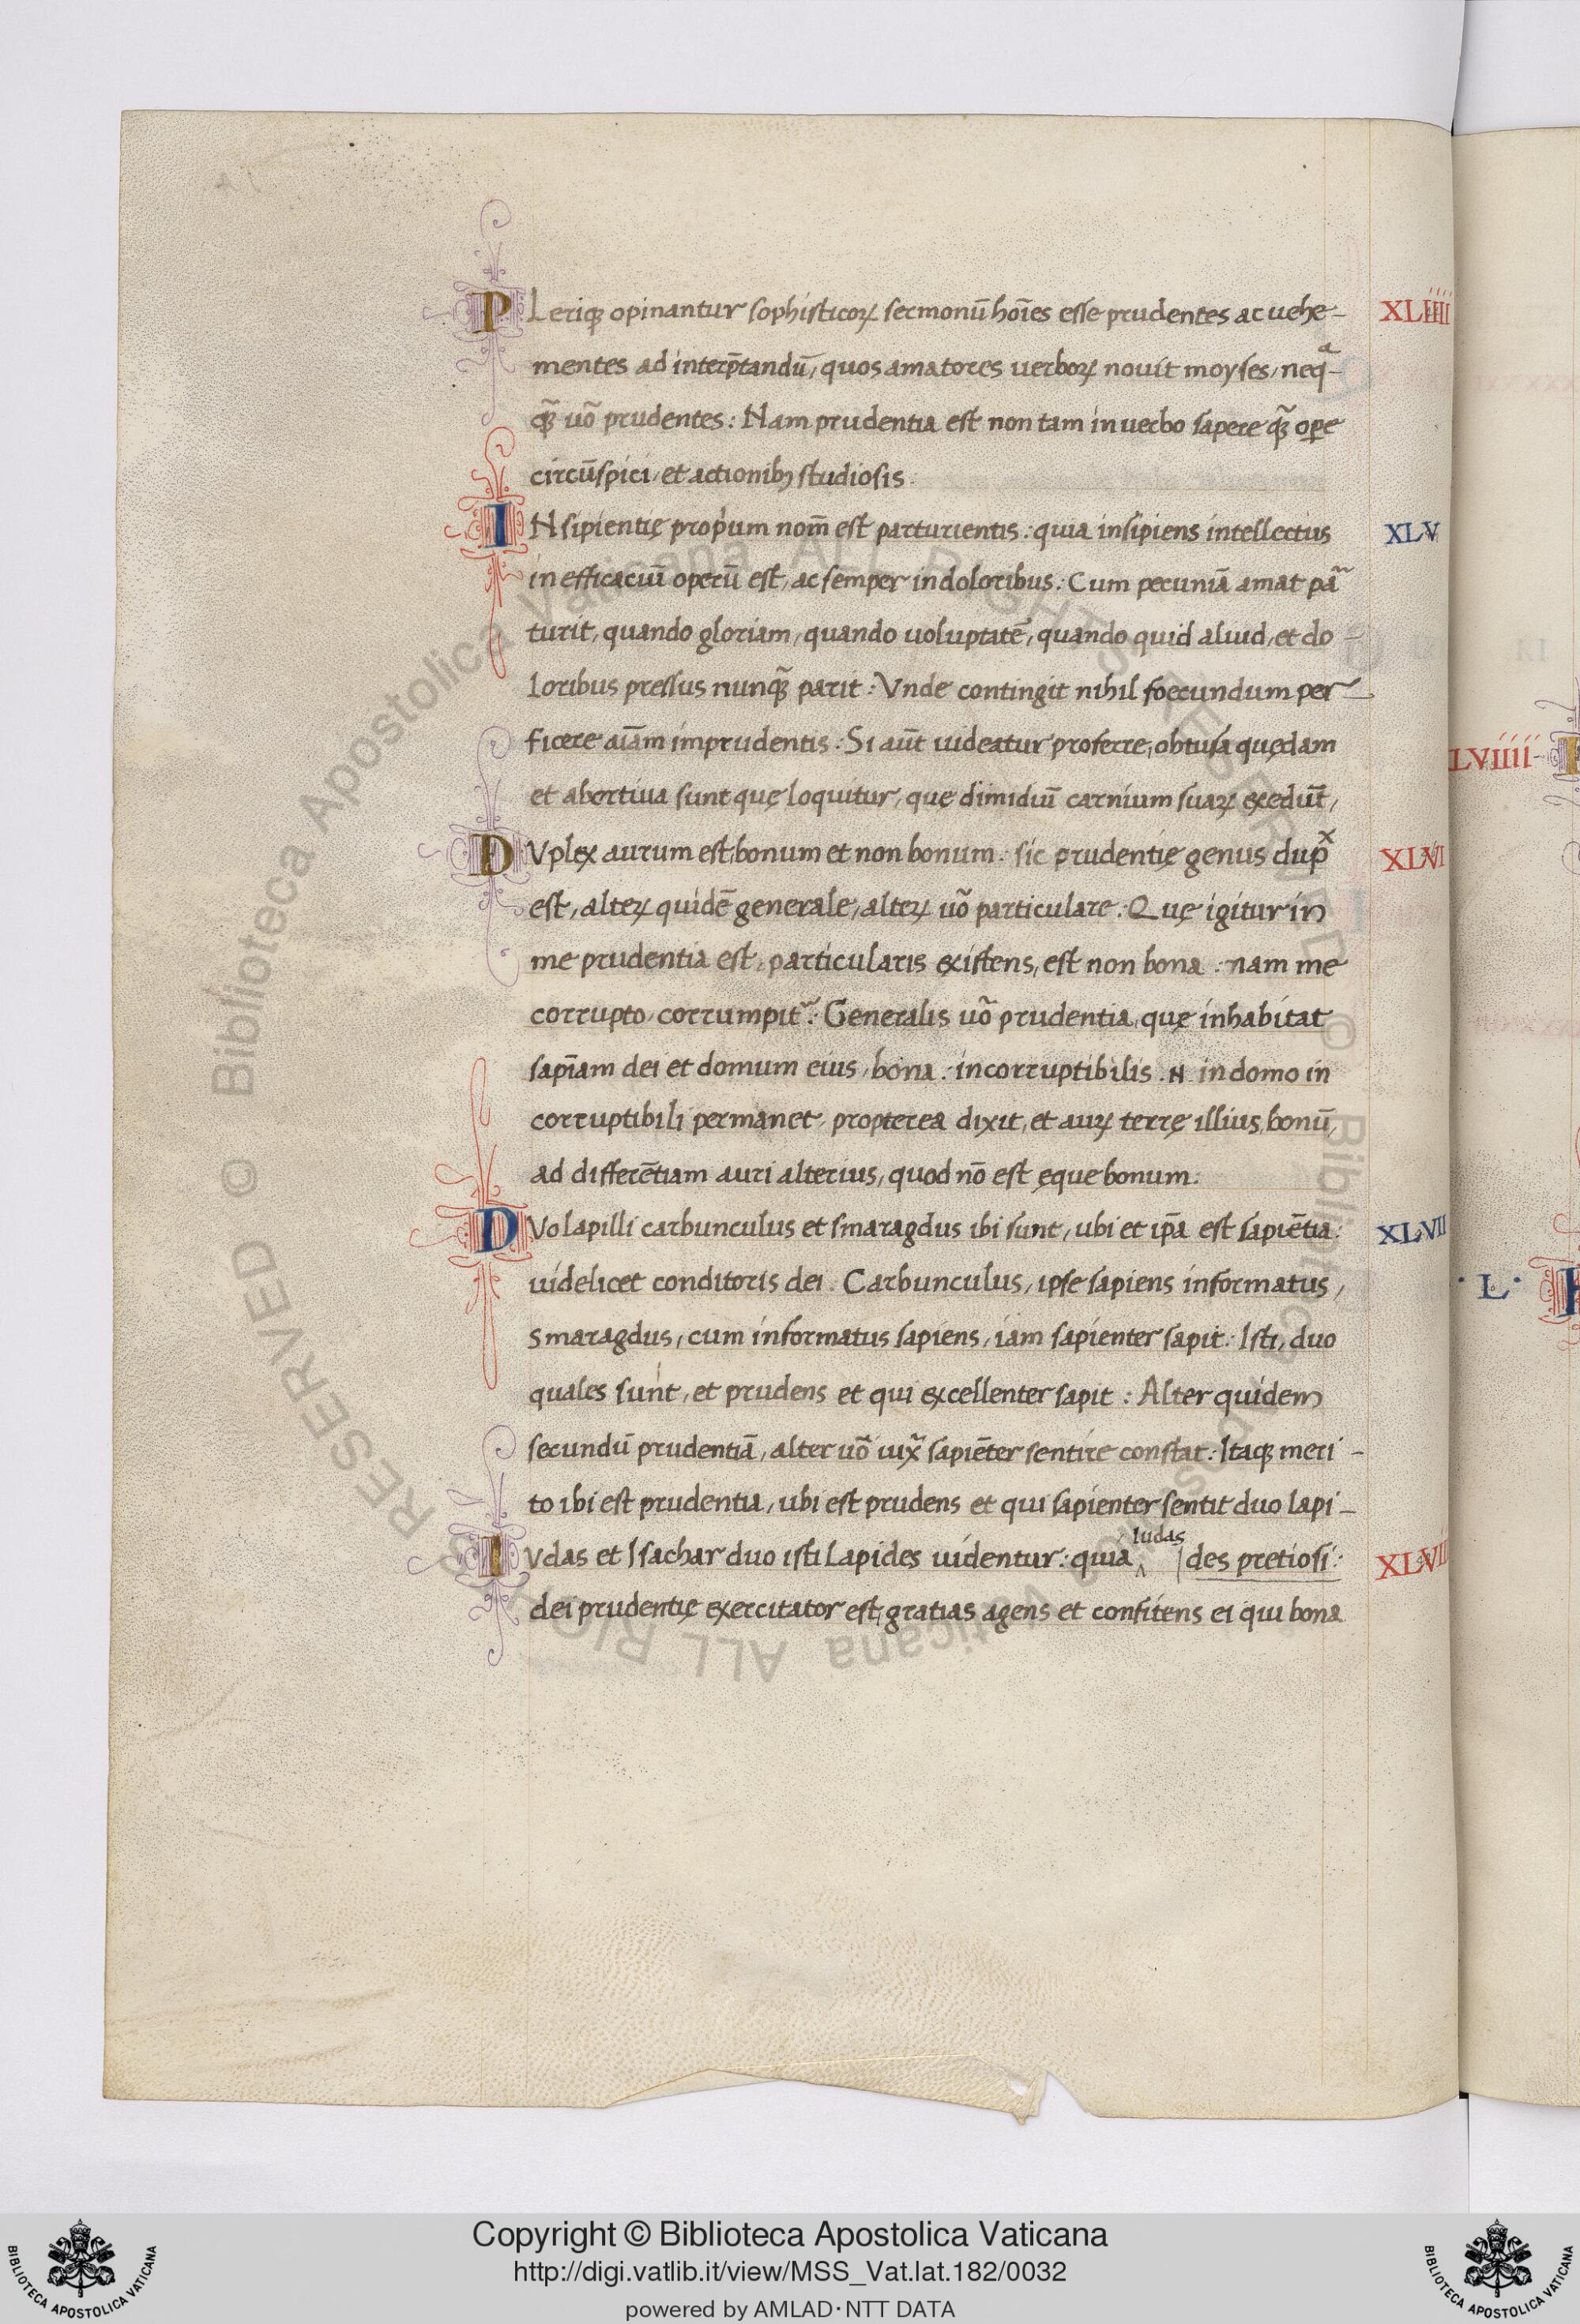 PLeriqꝫ opinantur sophisticoꝝ sermonū hoīes esse prudentes ac uehe- XLIIII
mentes ad interp̄tandū, quos amatores uerboꝝ nouit moyses, neqᵃ-
qꝫ̃ uō prudentes: Nam prudentia est non tam in uerbo sapere qꝫ̃ oꝑe
circūspici, et actionibꝫ studiosis.
INsipientię propⁱum nom̄ est parturientis: quia insipiens intellectus XLV
in efficaciū operū est, ac semper in doloribus: Cum pecuniā amat paᷓ
turit, quando gloriam, quando uoluptatē, quando quid aliud, et do-
loribus pressus nunqꝫ̃ parit: Vnde contingit nihil foecundum per-
ficere aīam imprudentis: Si aūt uideatur proferre, obtusa quędam
et abortiua sunt quę loquitur, quę dimidiū carnium suaꝝ exedūt,
DVplex aurum est, bonum et non bonum: sic prudentię genus dupˣ XLVI
est, alteꝝ quidē generale, alteꝝ uō particulare: Quę igitur in
me prudentia est, particularis existens, est non bona: nam me
corrupto, corrumpit᷑: Generalis uō prudentia, quę inhabitat
sapīam dei et domum eius, bona: incorruptibilis .N. in domo in
corruptibili permanet, propterea dixit, et auꝝ terrę illius, bonū,
ad differētiam auri alterius, quod nō est ęque bonum:
DVo lapilli carbunculus et smaragdus ibi sunt, ubi et ip̄a est sapiētia: XLVII
uidelicet conditoris dei. Carbunculus, ipse sapiens informatus,
Smaragdus, cum informatus sapiens, iam sapienter sapit: Isti, duo
quales sunt, et prudens et qui excellenter sapit: Alter quidem
secundū prudentiā, alter uō iuxᵃ sapiēter sentire constat: Itaqꝫ meri-
to ibi est prudentia, ubi est prudens et qui sapienter sentit duo lapi-
Iudas
IVdas et Isachar duo isti Lapides uidentur: quia ‸ | des pretiosi: XLVII
dei prudentię exercitator est, gratias agens et confitens ei qui bona
LVIIII
·L·
Copyright © Biblioteca Apostolica Vaticana
http://digi.vatlib.it/view/MSS_Vat.lat.182/0032
powered by AMLAD·NTT DATA
BIBLIOTECA APOSTOLICA VATICANA
BIBLIOTECA APOSTOLICA VATICANA
© Biblioteca Apostolica Vaticana ALL RIGHTS RESERVED © Biblioteca Apostolica Vaticana ALL RIGHTS RESERVED